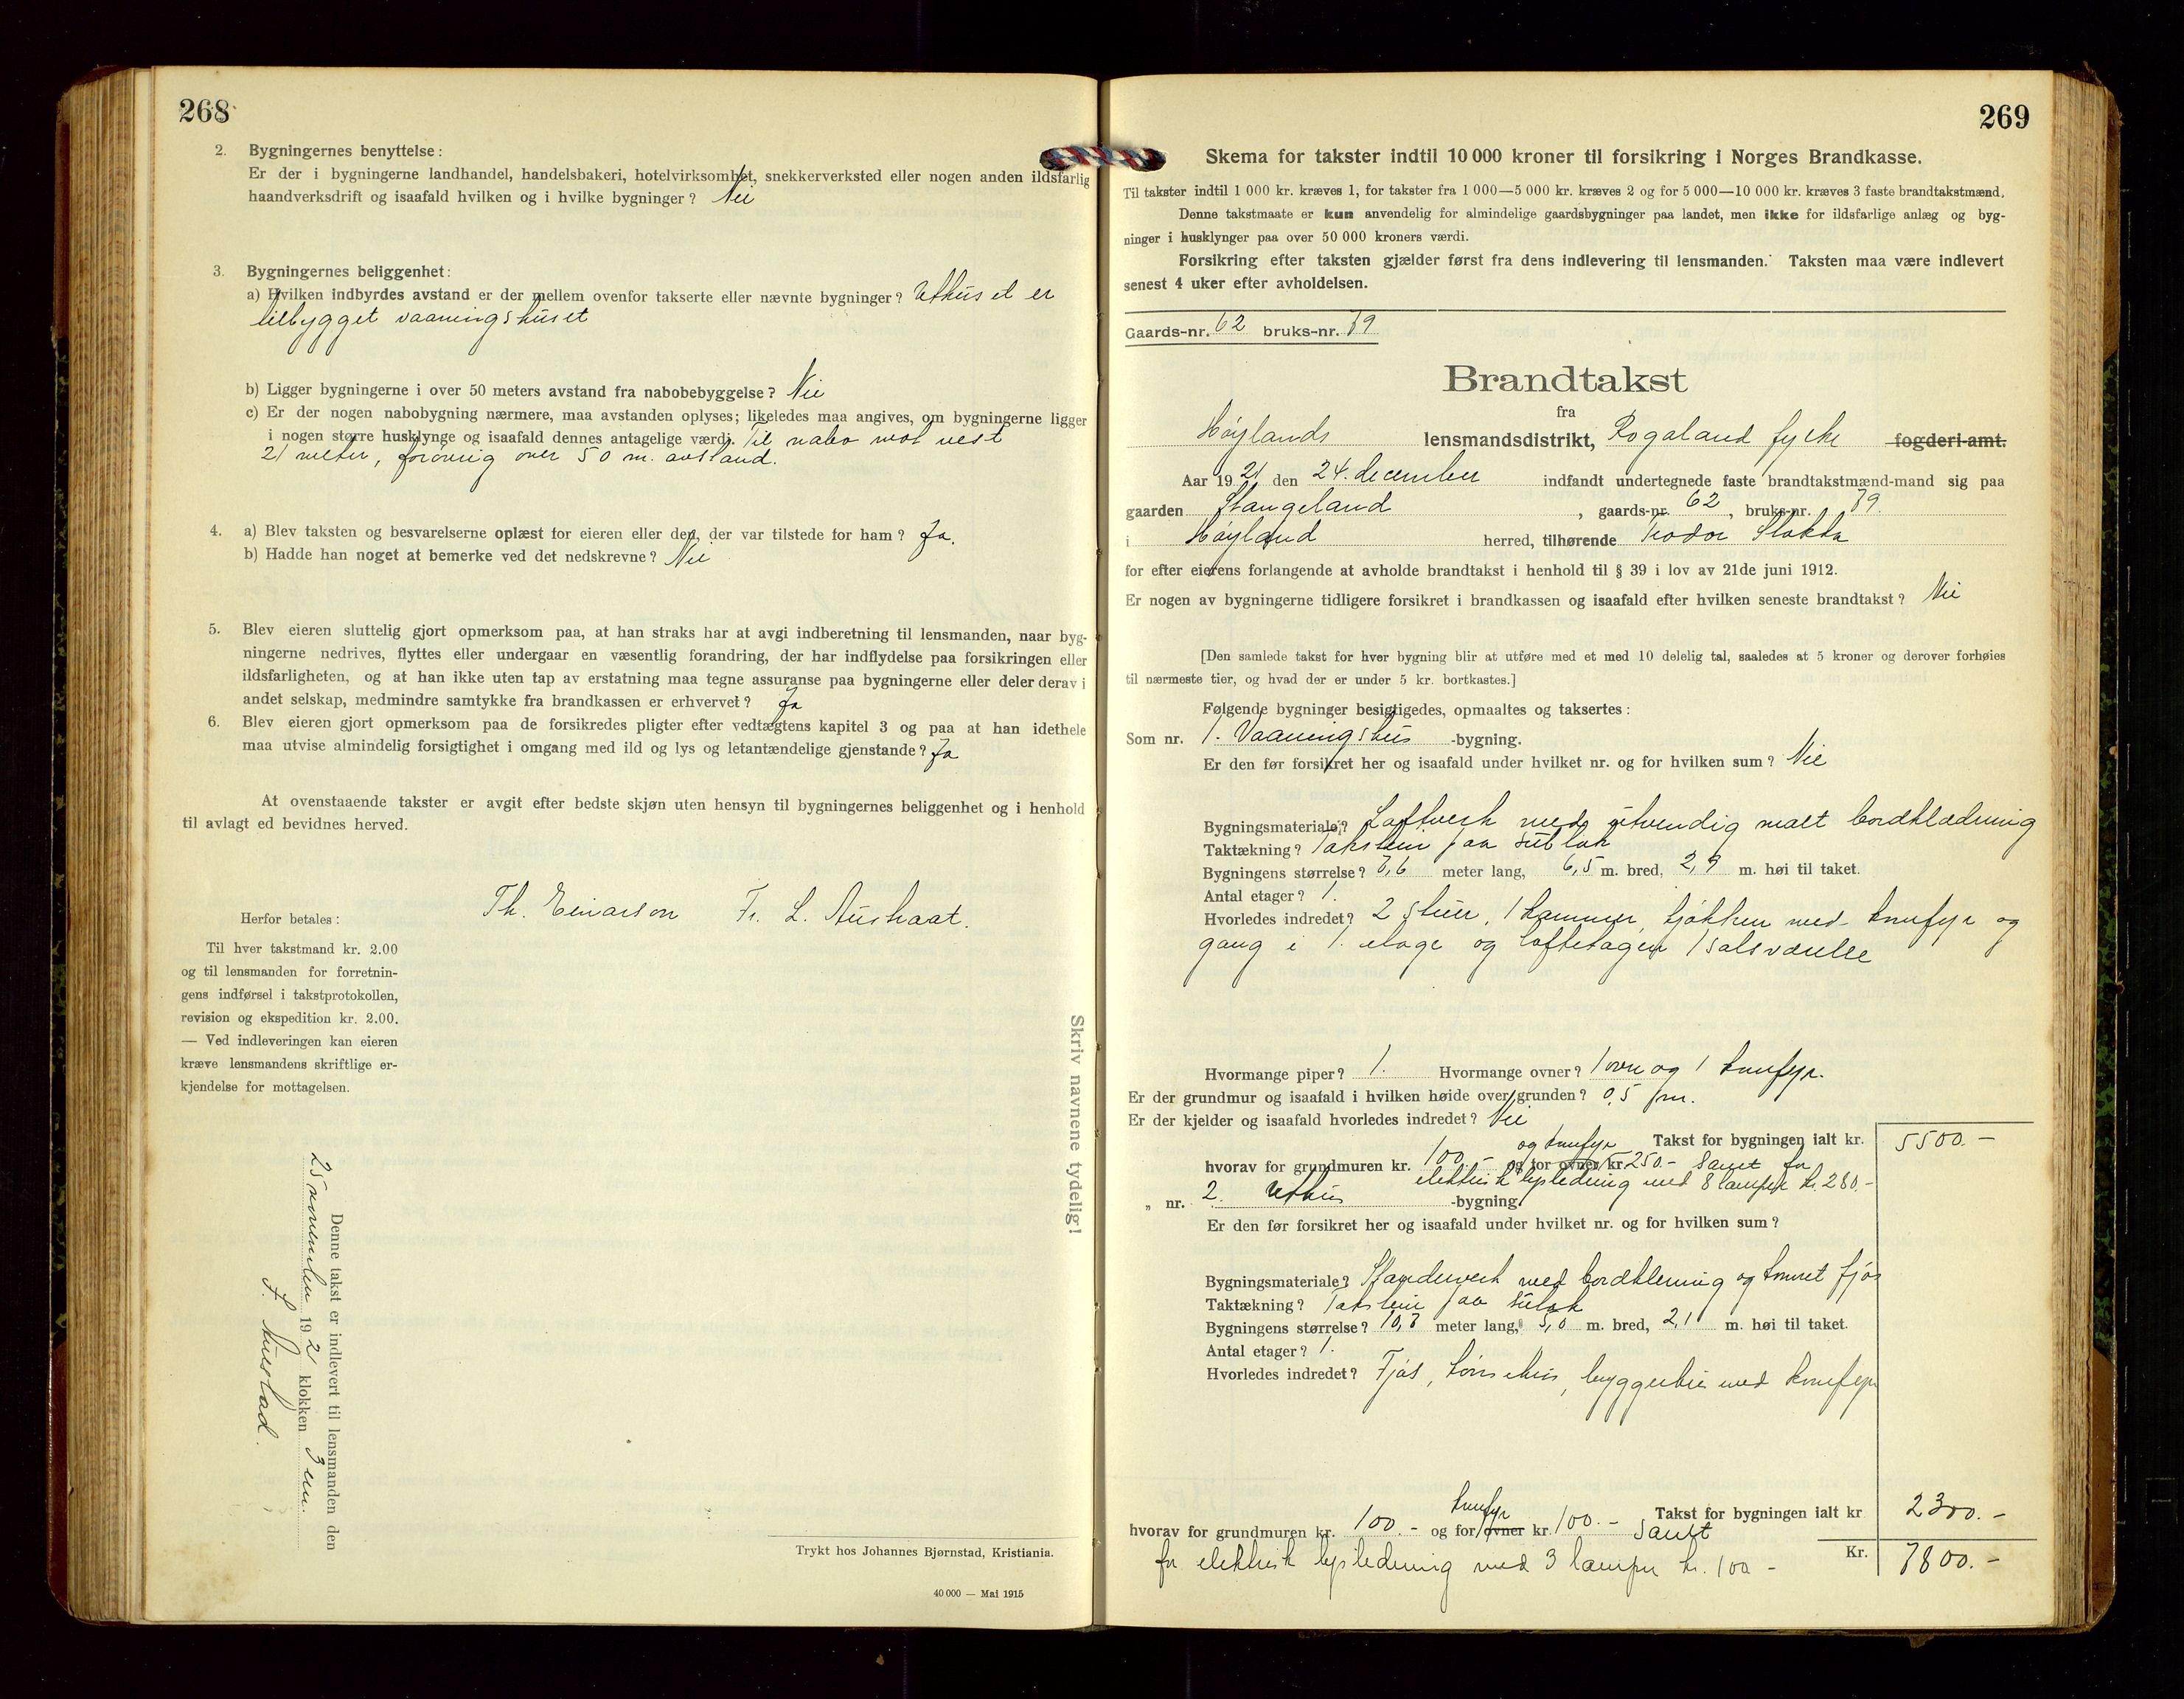 268
2. Bygningernes benyttelse:
Er der i bygningerne landhandel, handelsbakeri, hotelvirksomhet, snekkerverksted eller nogen anden ildsfarlig
haandverksdrift og isaafald hvilken og i hvilke bygninger? Nei
3. Bygningernes beliggenhet:
a) Hvilken indbyrdes avstand er der mellem ovenfor takserte eller nævnte bygninger? Uthuset er
tilbygget vaaningshuset
b) Ligger bygningerne i over 50 meters avstand fra nabobebyggelse? Nei
c) Er der nogen nabobygning nærmere, maa avstanden oplyses; likeledes maa angives, om bygningerne ligger
i nogen større husklynge og isaafald dennes antagelige værdi. Til nabo mot vest
21 meter, forøvrig over 50 m. avstand.
4. a) Blev taksten og besvarelserne oplæst for eieren eller den, der var tilstede for ham? Ja.
b) Hadde han noget at bemerke ved det nedskrevne? Nei
5. Blev eieren sluttelig gjort opmerksom paa, at han straks har at avgi indberetning til lensmanden, naar byg-
ningerne nedrives, flyttes eller undergaar en væsentlig forandring, der har indflydelse paa forsikringen eller
ildsfarligheten, og at han ikke uten tap av erstatning maa tegne assuranse paa bygningerne eller deler derav i
andet selskap, medmindre samtykke fra brandkassen er erhvervet? Ja
6. Blev eieren gjort opmerksom paa de forsikredes pligter efter vedtægtens kapitel 3 og paa at han idethele
maa utvise almindelig forsigtighet i omgang med ild og lys og letantændelige gjenstande? Ja
At ovenstaaende takster er avgit efter bedste skjøn uten hensyn til bygningernes beliggenhet og i henhold
til avlagt ed bevidnes herved.
Th. Einarson Fr. L. Aushaat.
Herfor betales:
Til hver takstmand kr. 2.00
og til lensmanden for forretnin-
gens indførsel i takstprotokollen,
revision og ekspedition kr. 2.00.
— Ved indleveringen kan eieren
kræve lensmandens skriftlige er-
kjendelse for mottagelsen.
Skriv navnene tydelig!
Denne takst er indlevert til lensmanden den
25 november 1921 klokken 3 em.
Trykt hos Johannes Bjørnstad, Kristiania.
40 000 — Mai 1915
269
Skema for takster indtil 10 000 kroner til forsikring i Norges Brandkasse.
Til takster indtil 1 000 kr. kræves 1, for takster fra 1 000—5 000 kr. kræves 2 og for 5 000—10 000 kr. kræves 3 faste brandtakstmænd.
Denne takstmaate er kun anvendelig for almindelige gaardsbygninger paa landet, men ikke for ildsfarlige anlæg og byg-
ninger i husklynger paa over 50 000 kroners værdi.
Forsikring efter taksten gjælder først fra dens indlevering til lensmanden. Taksten maa være indlevert
senest 4 uker efter avholdelsen.
Gaards-nr. 62 bruks-nr. 79
Brandtakst
fra
Høylands lensmandsdistrikt, Rogaland fylke fogderi-amt.
Aar 1921 den 24. december indfandt undertegnede faste brandtakstmænd-mand sig paa
gaarden Stangeland, gaards-nr. 62, bruks-nr. 79.
i Høyland herred, tilhørende Teodor Stokka
for efter eierens forlangende at avholde brandtakst i henhold til § 39 i lov av 21de juni 1912.
Er nogen av bygningerne tidligere forsikret i brandkassen og isaafald efter hvilken seneste brandtakst? Nei
[Den samlede takst for hver bygning blir at utføre med et med 10 delelig tal, saaledes at 5 kroner og derover forhøies
til nærmeste tier, og hvad der er under 5 kr. bortkastes.]
Følgende bygninger besigtigedes, opmaaltes og taksertes:
Som nr. 1. Vaaningshus -bygning.
Er den før forsikret her og isaafald under hvilket nr. og for hvilken sum? Nei
Bygningsmateriale? Loftverk med utvendig malt bordklædning
Taktækning? Takstein paa sutak
Bygningens størrelse? 7,6 meter lang, 6,5 m. bred, 2,9 m. høi til taket.
Antal etager? 1.
Hvorledes indredet? 2 stuer, 1 kammer, kjøkken med komfyr og
gang i 1. etage og loftetagen 1 salsværelse
Hvormange piper? 1. Hvormange ovner? 1 ovn og 1 komfyr.
Er der grundmur og isaafald i hvilken høide over grunden? 0,5 m.
Er der kjelder og isaafald hvorledes indredet? Nei
Takst for bygningen ialt kr. 5500.–
og komfyr
hvorav for grundmuren kr. 100.– og for ovner kr. 250.– samt for
elektrisk lysledning med 8 lamper kr. 280.–
„ nr. 2. Uthus -bygning.
Er den før forsikret her og isaafald under hvilket nr. og for hvilken sum?
Bygningsmateriale? Standerverk med bordklæning og tomret fjøs
Taktækning? Takstein paa sutak
Bygningens størrelse? 10,3 meter lang, 5,0 m. bred, 2,1 m. høi til taket.
Antal etager? 1.
Hvorledes indredet? Fjøs, hønsehus, bryggerhus med komfyr
Takst for bygningen ialt kr 2300.–
komfyr
hvorav for grundmuren kr. 100.– og for ovner kr. 100.– samt
for elektrisk lysledning med 3 lamper kr. 100 –
Kr. 7800.–